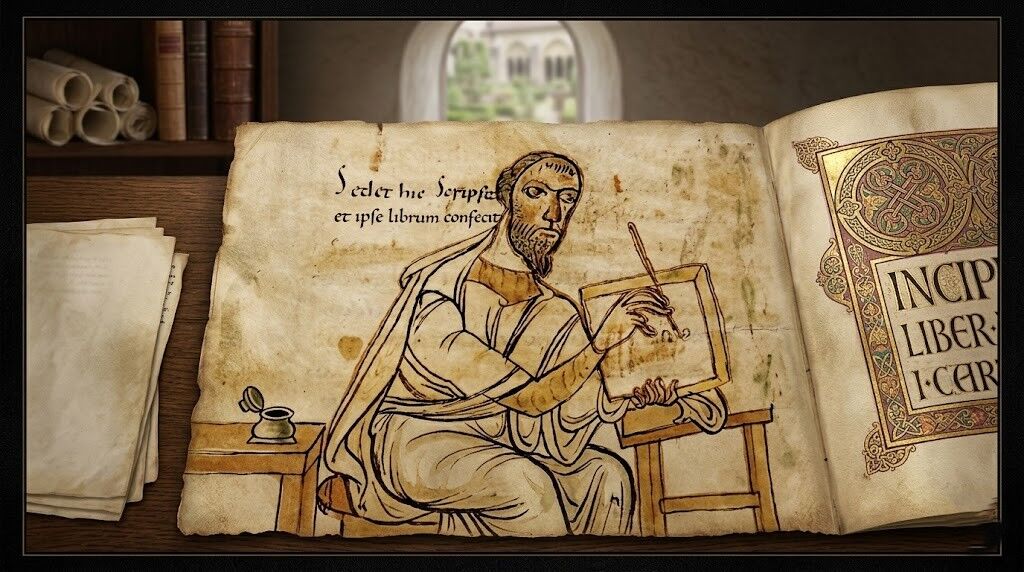 Sedet hic Scripse
et ipse librum confecit
INCIP
LIBER·
I·CAR